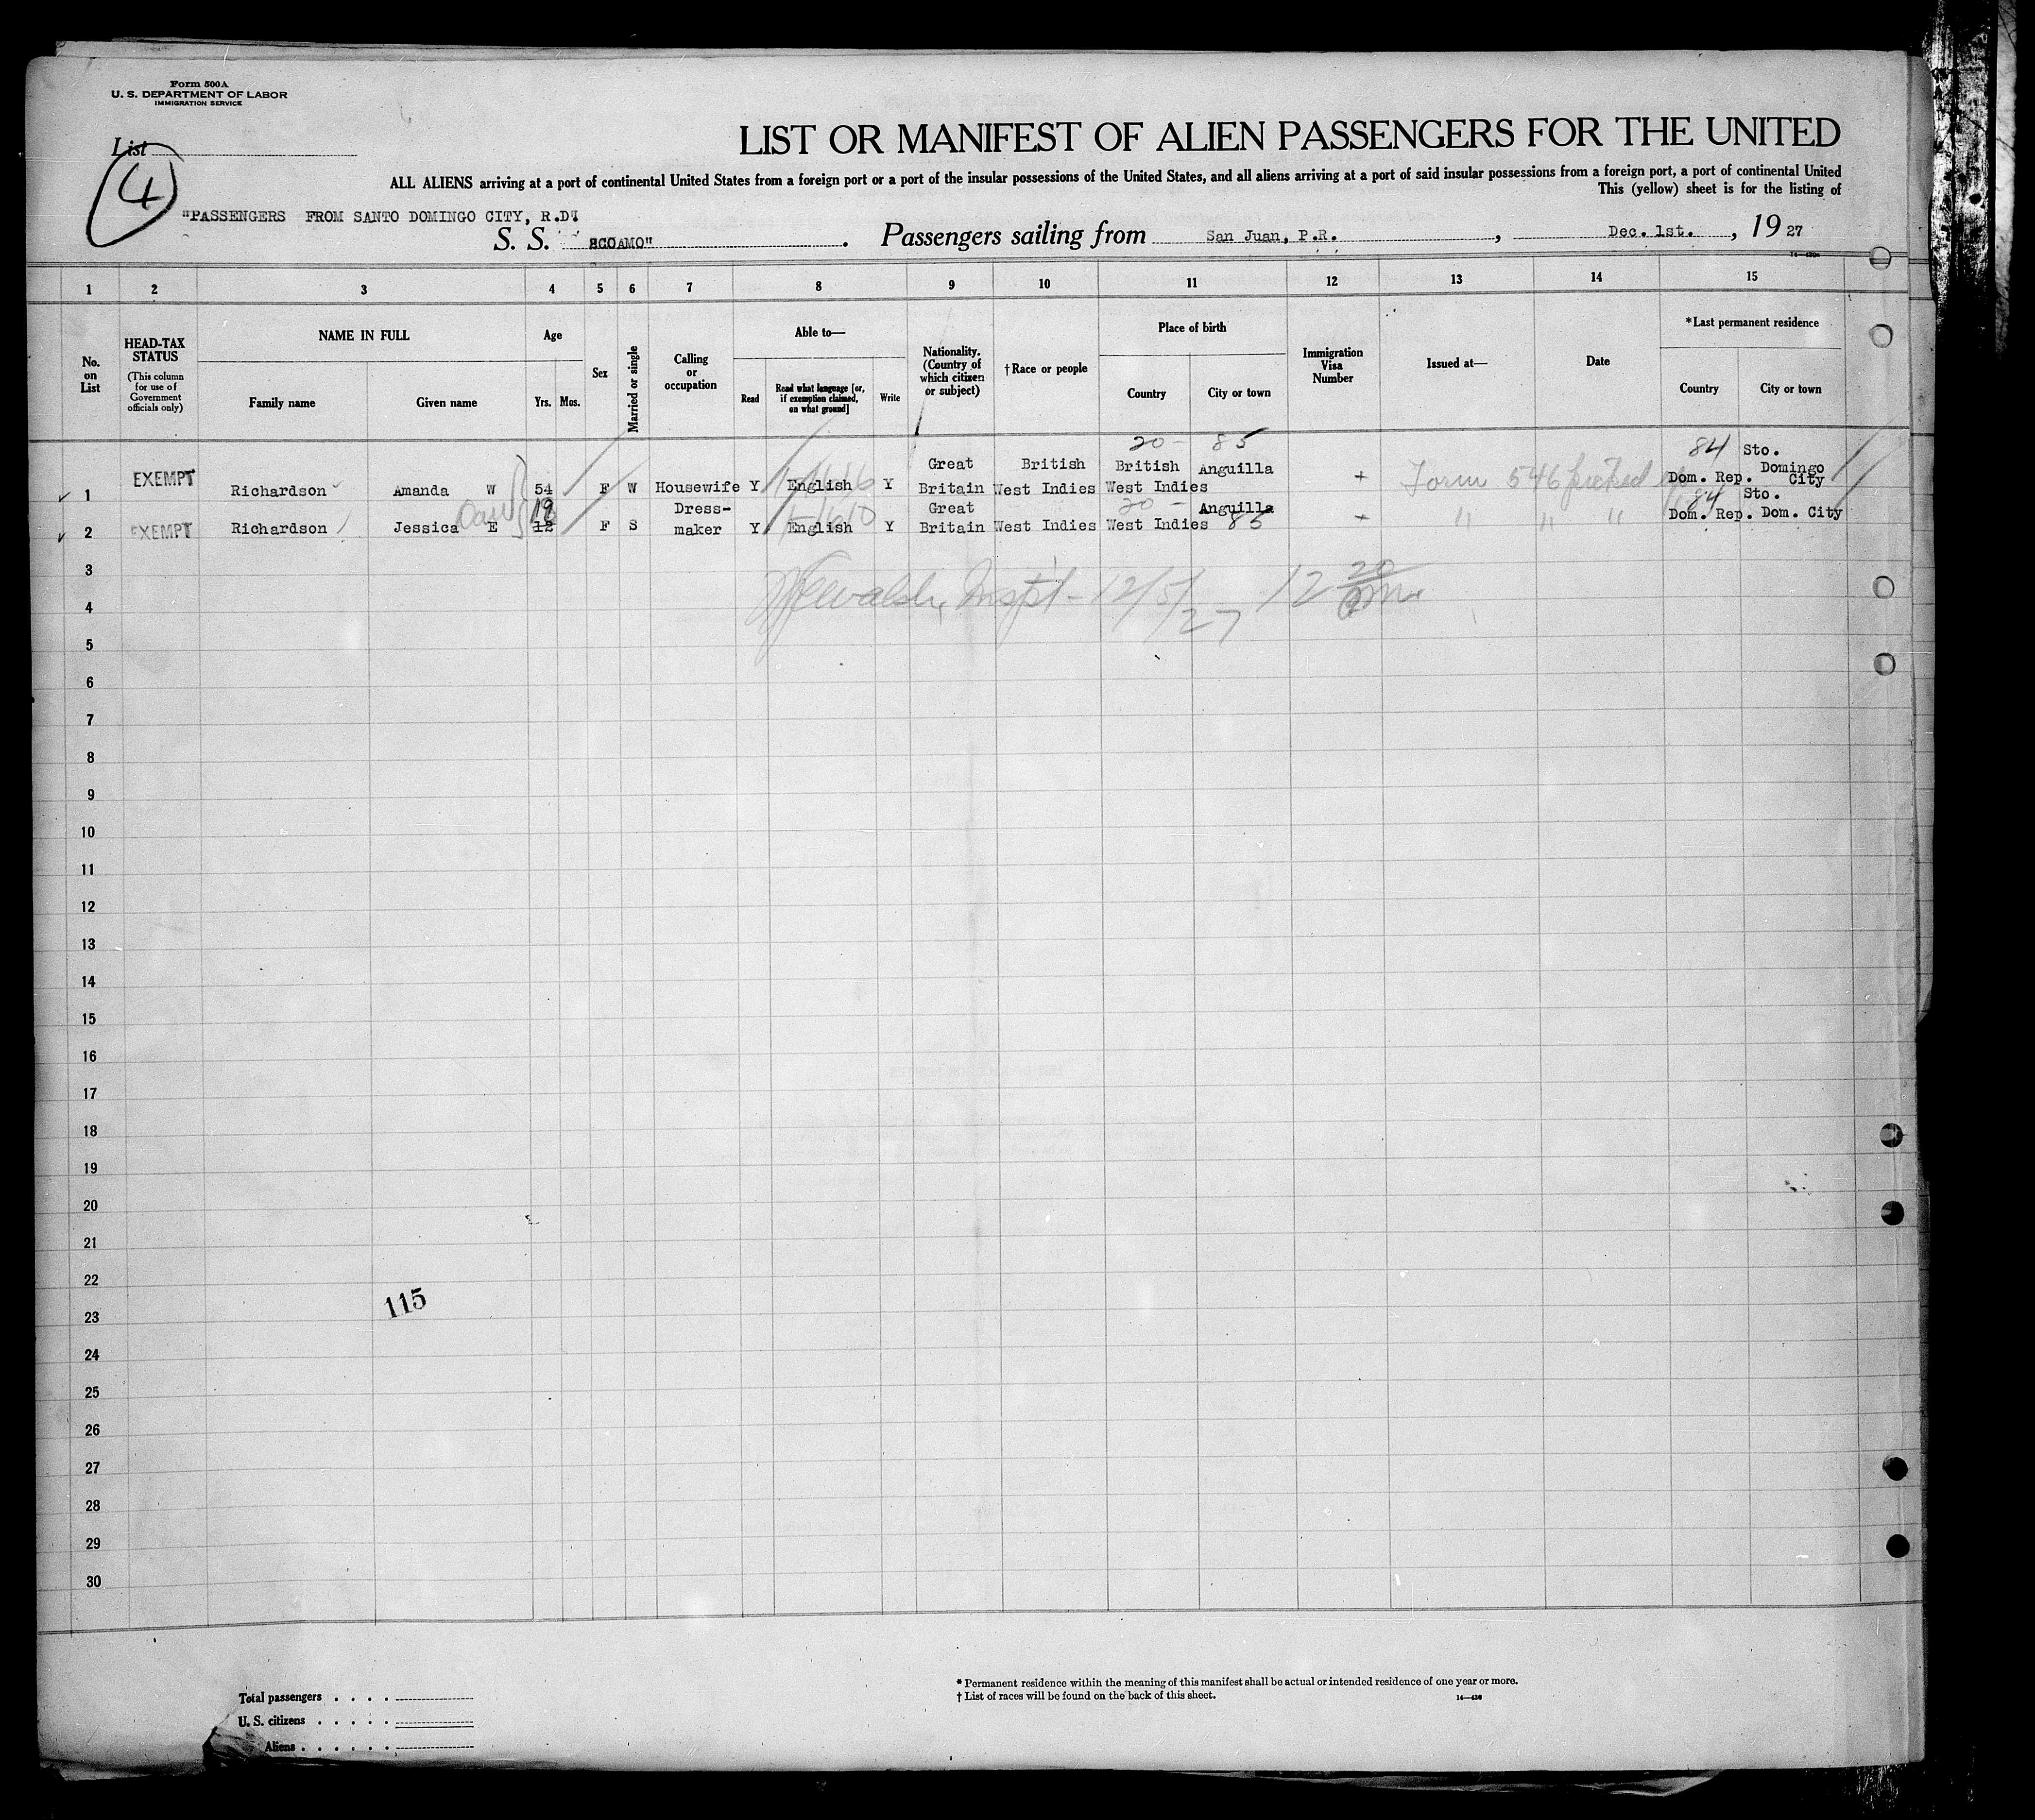 Form 500A
U. S. DEPARTMENT OF LABOR
IMMIGRATION SERVICE
List
4
LIST OR MANIFEST OF ALIEN PASSENGERS FOR THE UNITED
ALL ALIENS arriving at a port of continental United States from a foreign port or a port of the insular possessions of the United States, and all aliens arriving at a port of said insular possessions from a foreign port, a port of continental United
This (yellow) sheet is for the listing of
"PASSENGERS FROM SANTO DOMINGO CITY, R.D"
S. S. COAMO" . Passengers sailing from San Juan, P.R. , Dec. 1st. , 19 27
1 2 3 4 5 6 7 8 9 10 11 12 13 14 15
No. on List
HEAD-TAX STATUS
(This column for use of Government officials only)
NAME IN FULL
Family name Given name
Age
Yrs. Mos.
Sex
Married or single
Calling or occupation
Able to—
Read
Read what language [or, if exemption claimed, on what ground]
Write
Nationality. (Country of which citizen or subject)
† Race or people
Place of birth
Country City or town
Immigration Visa Number
Issued at—
Date
*Last permanent residence
Country City or town
20 - 85 84
1 EXEMPT Richardson Amanda W 54 F W Housewife Y English Y Great Britain British West Indies British West Indies Anguilla + Form 546 Dom. Rep. Sto. Domingo City
20 - 85 84
2 EXEMPT Richardson Jessica E 12 19 F S Dress-maker Y English Y Great Britain West Indies West Indies Anguilla + " " " Dom. Rep. Sto. Dom. City
12/5/27 12 20
3
4
5
6
7
8
9
10
11
12
13
14
15
16
17
18
19
20
21
22
23
115
24
25
26
27
28
29
30
Total passengers . . . .
U. S. citizens . . . . .
Aliens . . . . . .
* Permanent residence within the meaning of this manifest shall be actual or intended residence of one year or more.
† List of races will be found on the back of this sheet.
14—430